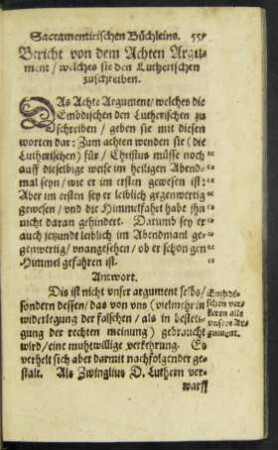 Sacramentirischen Büchleins. 55
Bericht von dem Achten Argu-
ment / welches sie den Lutherischen
zuschreiben.
DAs Achte Argument / welches die
Embdischen den Lutherischen zu
schreiben / geben sie mit diesen
worten dar: Zum achten wenden sie (die
Lutherischen) für / Christus müsse noch
auff dieselbige weise im heiligen Abend-
mal seyn / wie er im ersten gewesen ist:
Aber im ersten sey er leiblich gegenwertig
gewesen / vnd die Himmelfahrt habe jhn
nicht daran gehindert. Darumb sey er
auch jetzundt leiblich im Abendmanl ge-
genwertig / vnangesehen / ob er schon gen
Himmel gefahren ist.
Antwort.
Dis ist nicht vnser argument selbs /
sondern dessen / das von vns (vielmehr in
widerlegung der falschen / als in bestett-
gung der rechten meinung) gebraucht
wird / eine muhtwillige verkehrung. Es
verhelt sich aber darmit nachfolgender ge-
stalt. Als Zwinglius D. Luthern ver-
warff
Embdi-
schen ver-
keren alle
vnsere Ar-
gument.